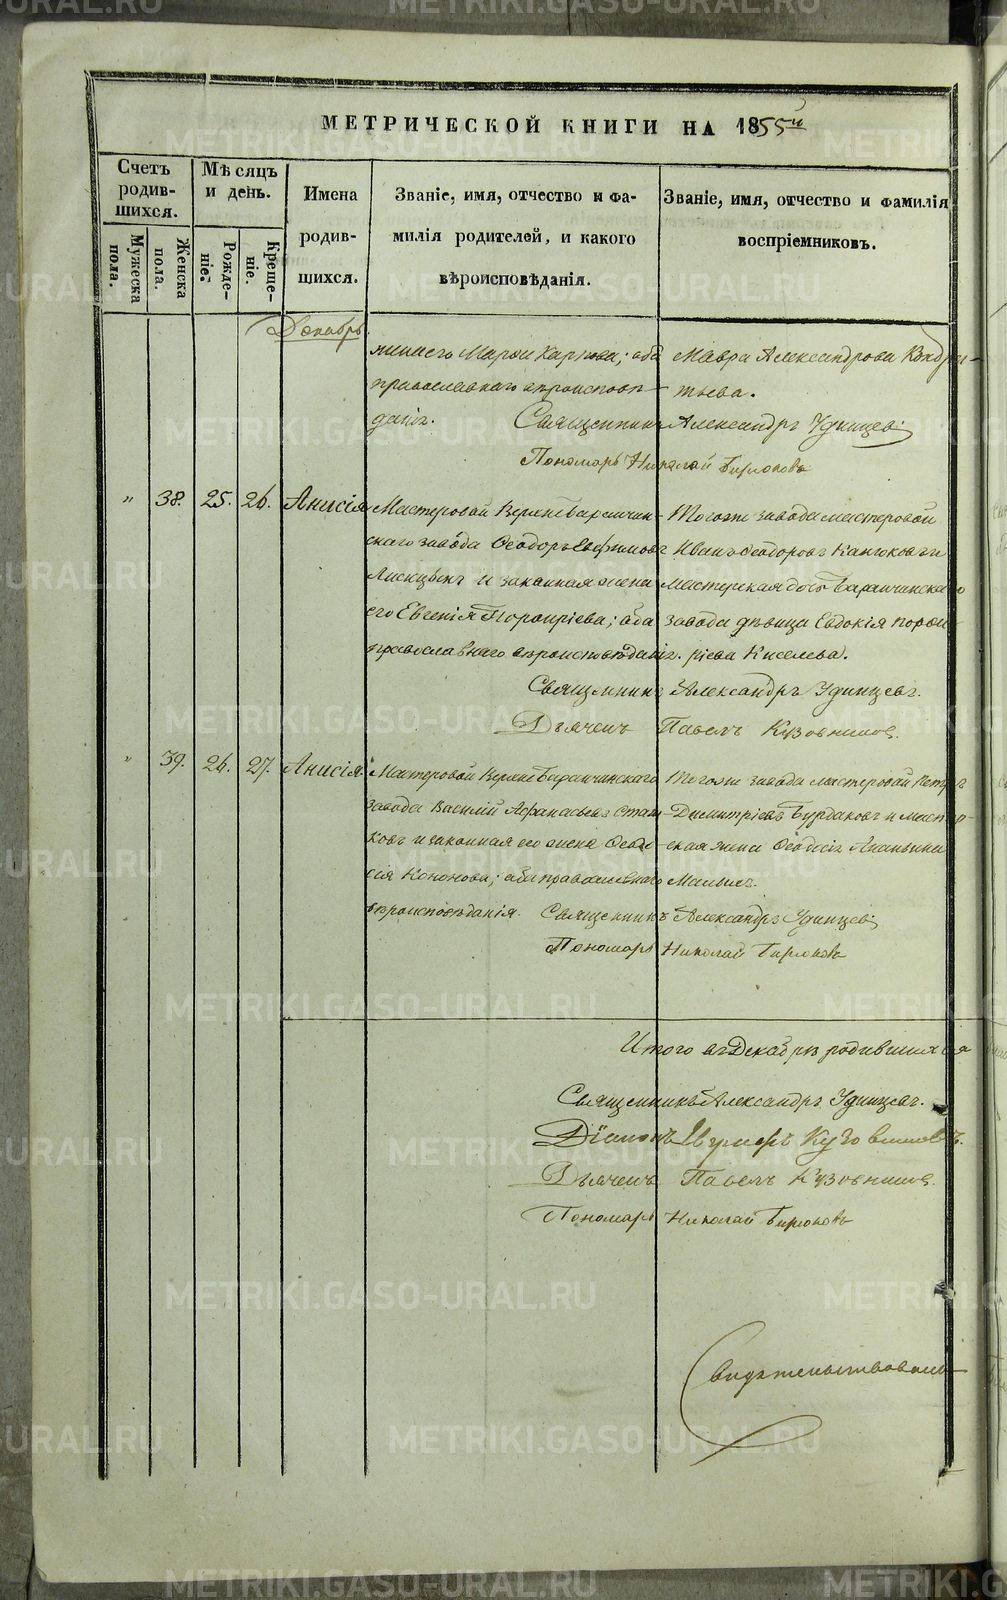 МЕТРИЧЕСКОЙ КНИГИ НА 1855й
Счетъ родив-шихся.
Мужеска пола.
Женска пола.
Мѣсяцъ и день.
Рожде-ніе.
Креще-ніе.
Имена родив-шихся.
Званіе, имя, отчество и фа-
милія родителей, и какого
вѣроисповѣданія.
Званіе, имя, отчество и фамилія
воспріемниковъ.
Декабрь.
жена его Марѳа Карпова; оба
православнаго вѣроисповѣ-
данія.
Мавра Александрова Кондра-
тьева.
Священникъ Александръ Удинцевъ.
Пономарь Николай Бирюковъ
" 38. 25. 26. Анисія
Мастеровой Верхнебаранчин-
скаго завода Ѳеодоръ Евфимовъ
Лисицынъ и законная жена
его Евгенія Порфиріева; оба
православнаго вѣроисповѣданія.
Тогоже завода мастеровой
Иванъ Ѳеодоровъ и
мастерская дочь Баранчинскаго
завода дѣвица Евдокія Порфи-
ріева Киселева.
Священникъ Александръ Удинцевъ.
Дьячекъ Павелъ Кузовниковъ.
" 39. 26. 27. Анисія.
Мастеровой Верхнебаранчинскаго
завода Василій Афанасьевъ
и законная его жена Ѳеодо-
сія Кононова; оба православнаго
вѣроисповѣданія.
Тогоже завода мастеровой Петръ
Димитріевъ Бурдаковъ и мастер-
ская жена Ѳеодосія Ананьина
Малыхъ.
Священникъ Александръ Удинцевъ.
Пономарь Николай Бирюковъ
Итого въ Декабрѣ родившихся
Священникъ Александръ Удинцевъ.
Діаконъ Кузовниковъ.
Дьячекъ Павелъ Кузовниковъ.
Пономарь Николай Бирюковъ
Свидѣтельствовалъ
METRIKI.GASO-URAL.RU